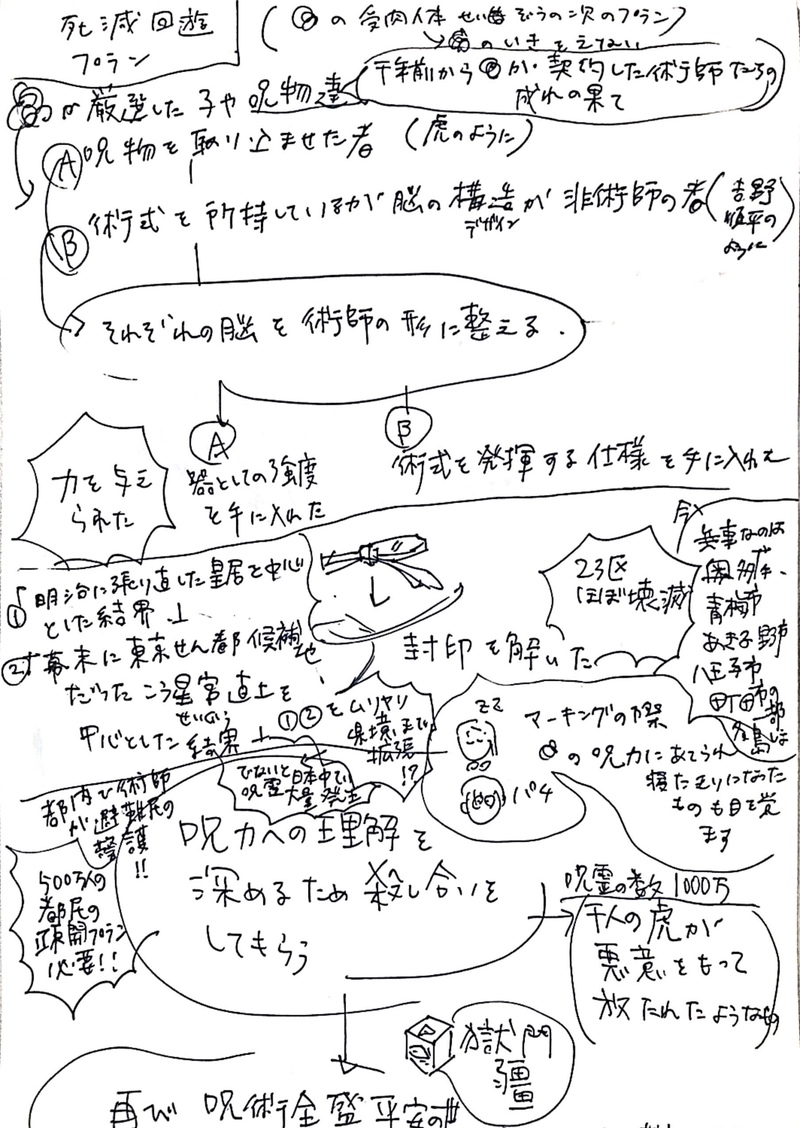 死滅回遊
プラン
の受肉人体
の次のプラン)
のいきをえない
千年前から
が契約した術師たちの
成れの果て
が厳選した子や呪物達
Ⓐ 呪物を取り込ませた者 (虎のように)
Ⓑ 術式を所持しているが脳の構造が非術師の者
デザイン
(吉野
順平の
ように)
それぞれの脳を術師の形に整える.
Ⓐ
器としての強度
を手に入れた
Ⓑ
術式を発揮する仕様を手に入れた
力を与え
られた
① 明治に張り直した皇居を中心
とした結界
② 幕末に東京せん都候補地
だった こう星宮直上を
中心とした結界
①②をムリヤリ
県境まで
拡張!?
でないと日本中で
呪霊大量発生
封印を解いた
23区
ほぼ壊滅
今
兵事なのは
奥多摩、
青梅市
あきる野市
八王子市
町田市の
一部
島
zz
パチ
マーキングの際
の呪力にあてられ
寝たきりになった
ものも目を覚
ます
都内で術師
が避難民の
警護!!
500万人の
都民の
疎開プラン
必要!!
呪力への理解を
深めるため殺し合いを
してもらう
呪霊の数 1000万
千人の虎が
悪意をもって
放たれたようなもの
獄門
疆
再び 呪術全盛平安の世